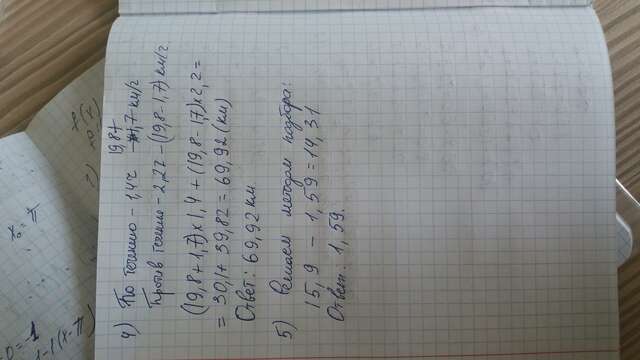 4) По течению - 1,4ч 19,8+1,7 км/ч
Против течению - 2,2ч - (19,8-1,7) км/ч
(19,8+1,7)х1,4+(19,8-1,7)х2,2=
=30,1+39,82=69,92 (км)
Ответ: 69,92 км.
5) Решаем методом подбора:
15,9 - 1,59 = 14,31
Ответ: 1,59.
x₀ = π